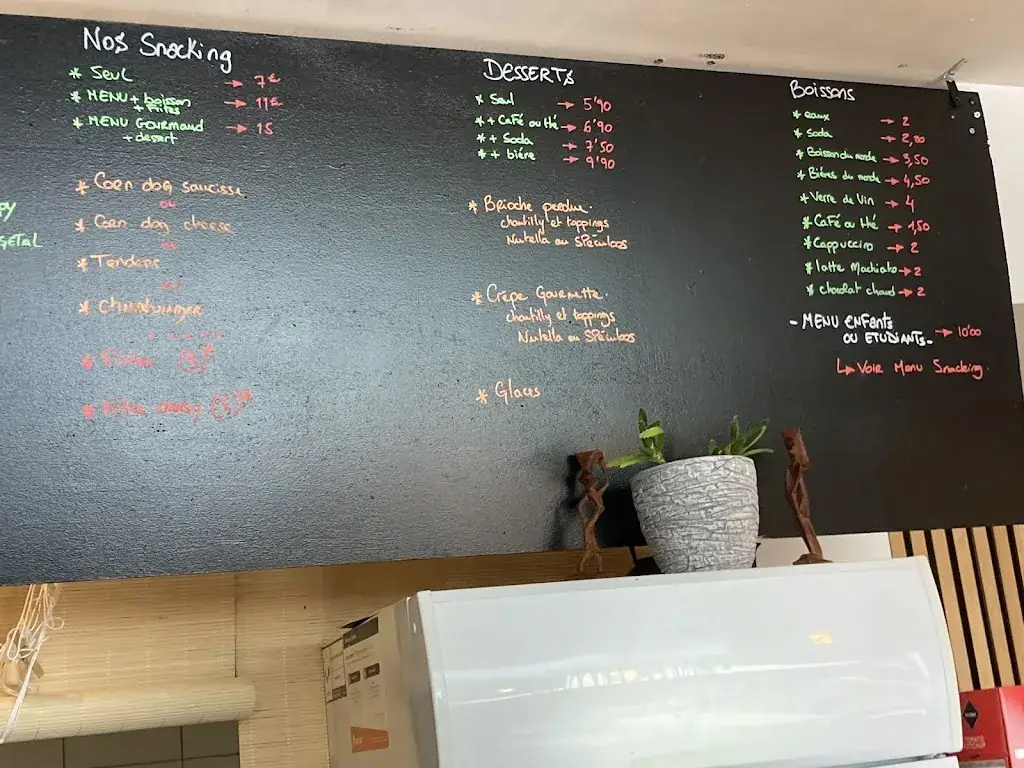 Nos Snacking
* Seul → 7€
* MENU + boisson + Frites → 11€
* MENU GOURMAND + dessert → 15
* Corn dog saucisse
ou
* Corn dog cheese
* Tenders
DESSERTS
* Seul → 5'90
* + Café ou thé → 6'90
* + Soda → 7'50
* + bière → 9'90
* Brioche perdue.
chantilly et toppings
Nutella ou Spéculoos
* Crêpe Gourmette.
chantilly et toppings
Nutella ou Spéculoos
* Glaces
Boissons
* eaux → 2
* Soda → 2,20
* Boisson du monde → 3,50
* Bières du monde → 4,50
* Verre de Vin → 4
* Café ou thé → 1,50
* Cappuccino → 2
* latte Machiato → 2
* chocolat chaud → 2
- MENU ENFANTS
OU ETUDIANTS - → 10'00
↳ Voir Menu Snacking.